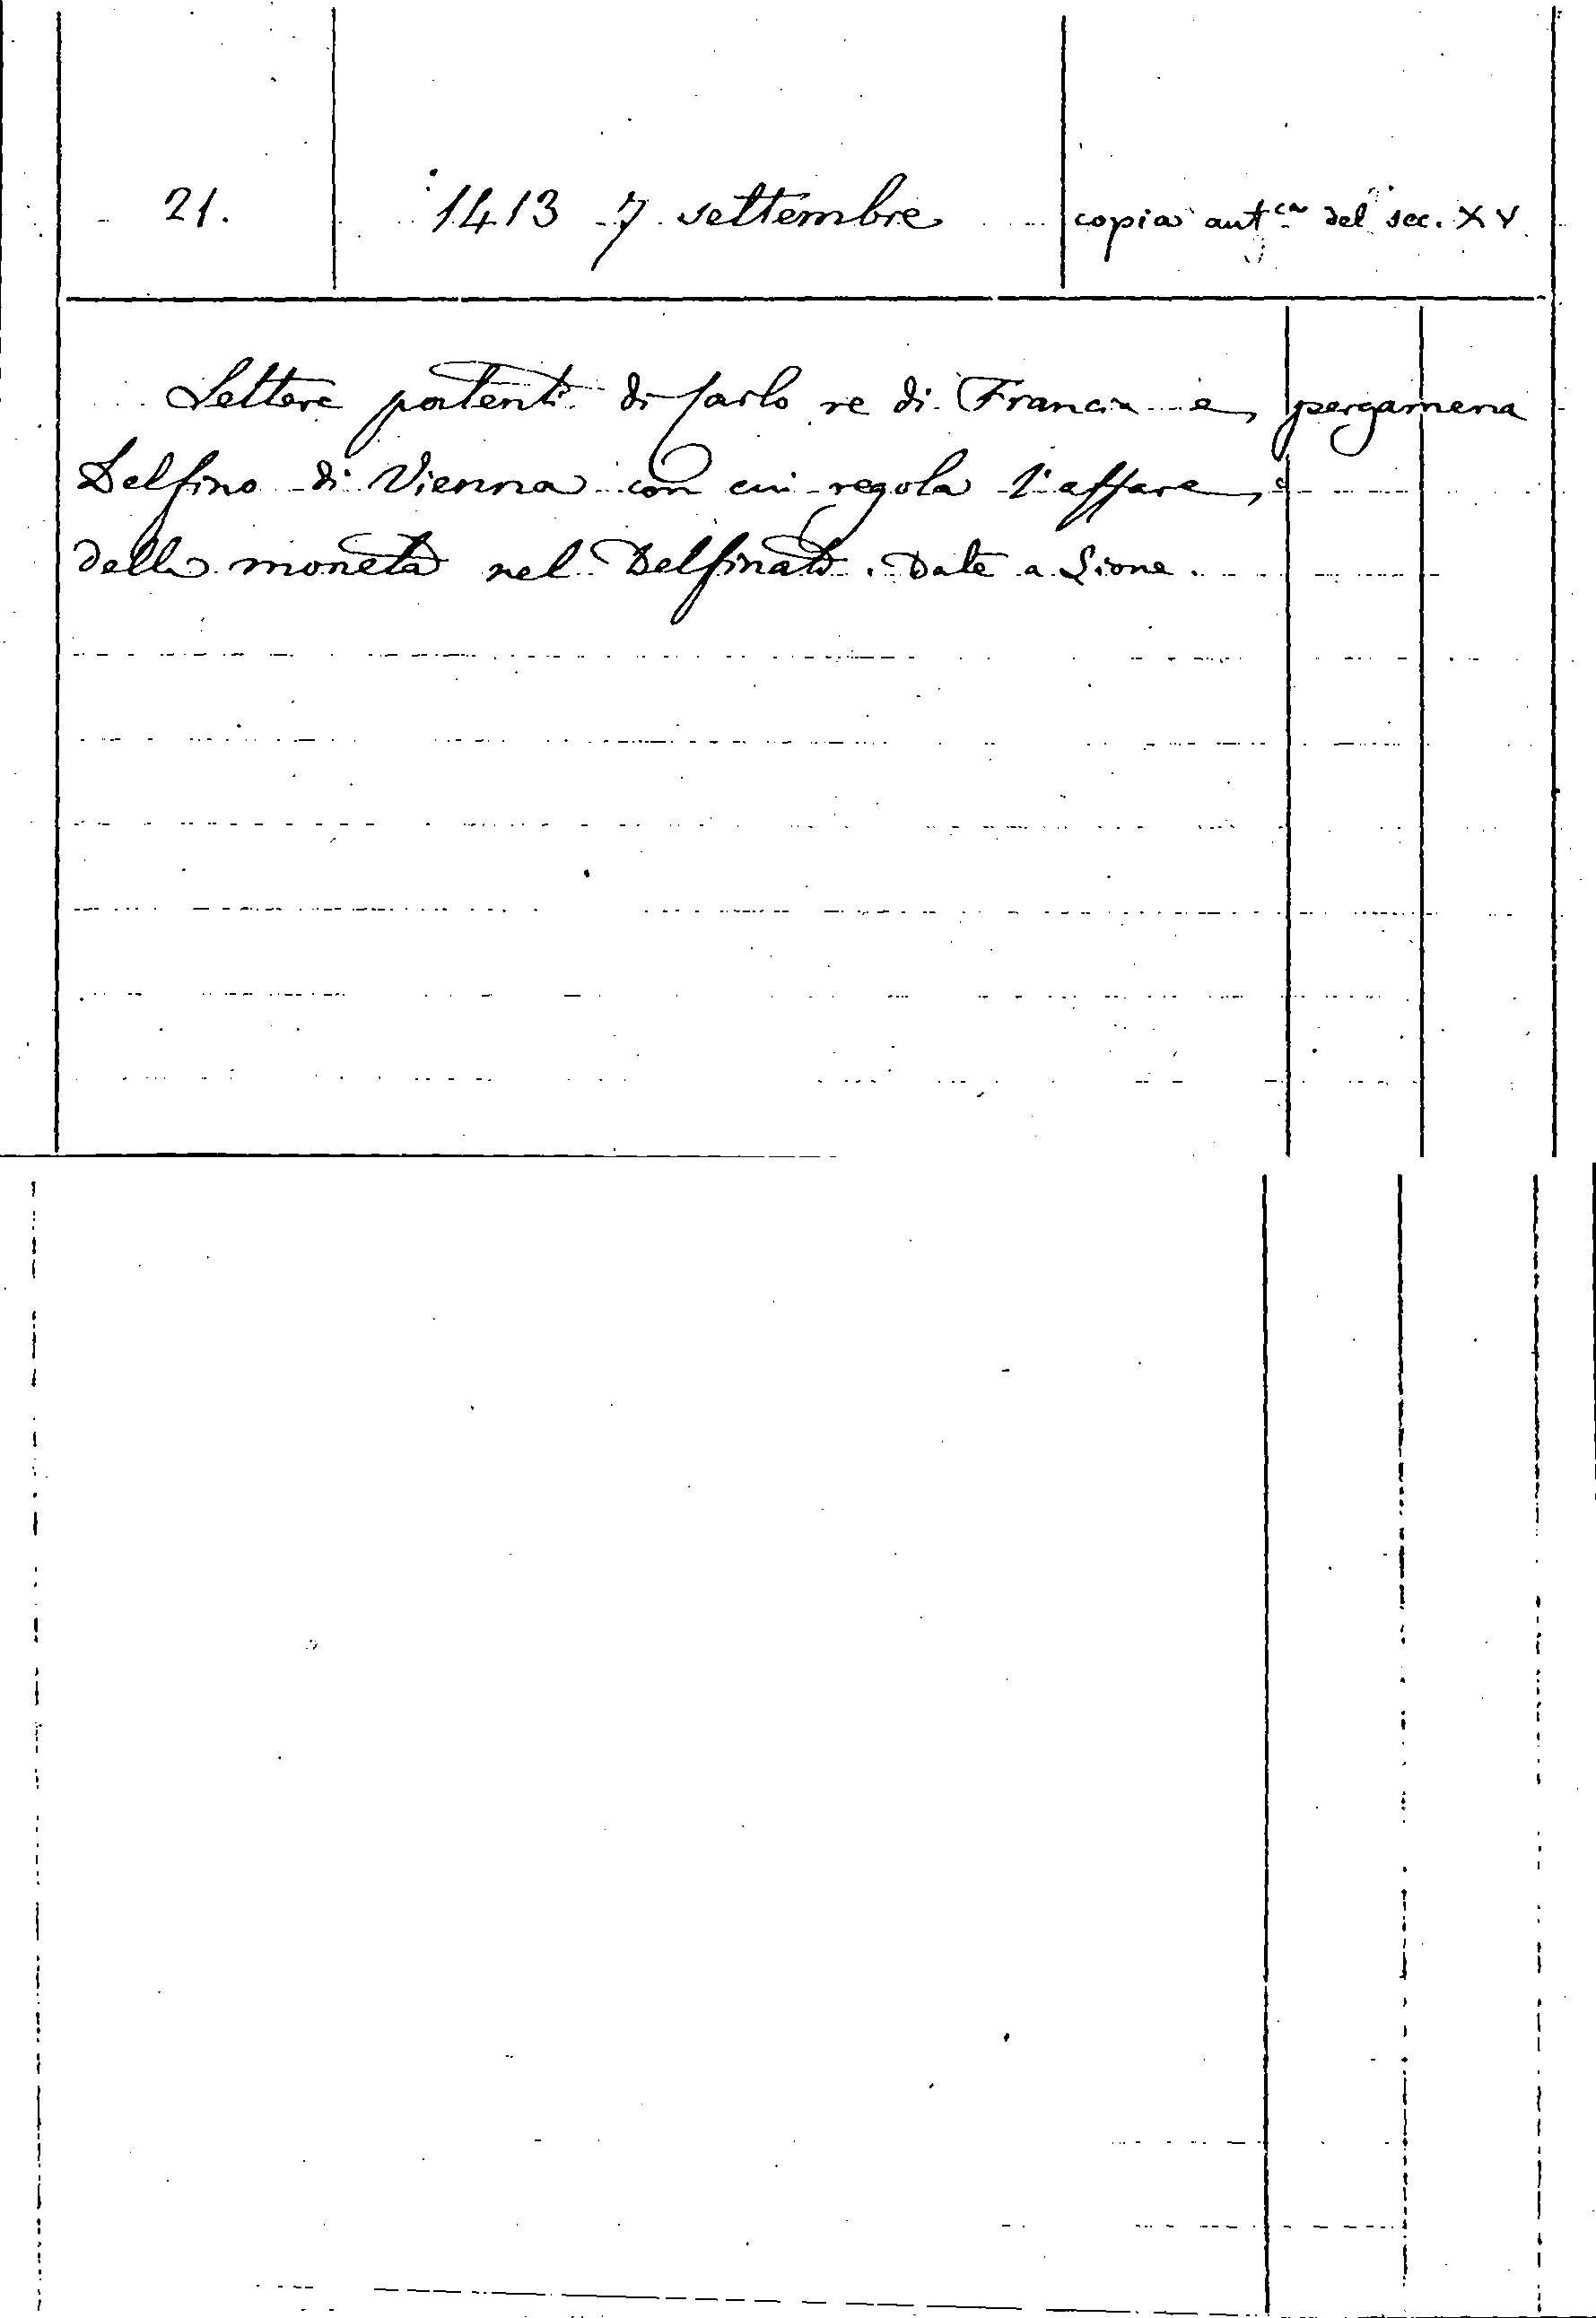 21. 1413 7 settembre copia autca del sec. XV
Lettere patenti di Carlo re di Francia e pergamena
Delfino di Vienna con cui regola l'affare
della moneta nel Delfinato. Date a Lione.